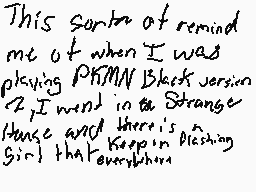 This sorta of remind
me of when I was
playing PKMN Black version
2, I went in the Strange
House and there is a
girl that keep in flashing
everywhere